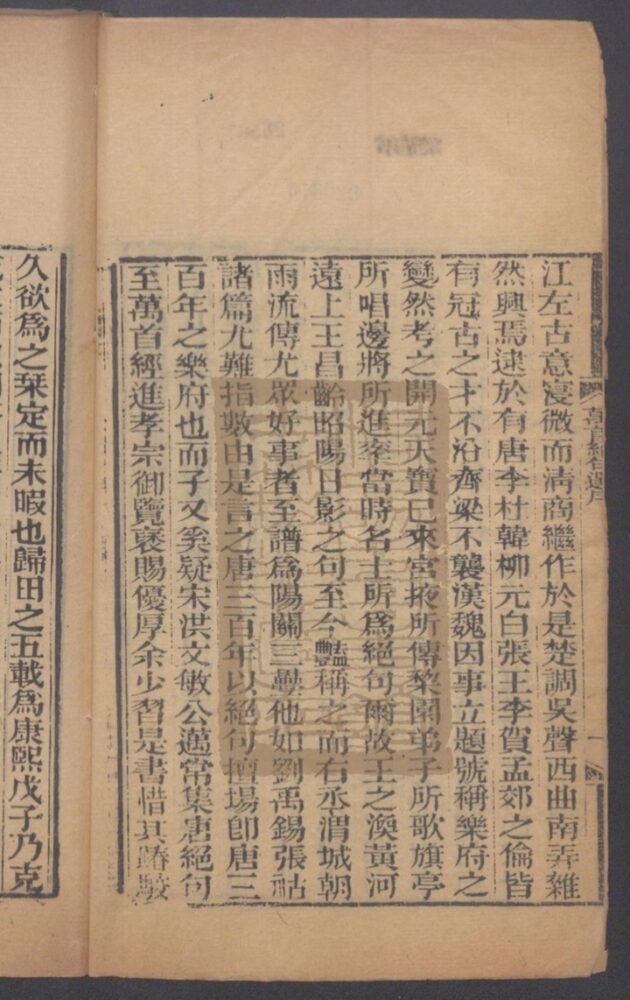 江左古意寖微而淸商繼作於是楚調吳聲西曲南弄雜
然興焉逮於有唐李杜韓柳元白張王李賀孟郊之倫皆
有冠古之才不沿齊梁不襲漢魏因事立題號稱樂府之
變然考之開元天寶已來宮掖所傳棃園弟子所歌旗亭
所唱邊將所進率當時名士所爲絕句爾故王之渙黃河
遠上王昌齡昭陽日影之句至今豔稱之而右丞渭城朝
雨流傳尤眾好事者至譜爲陽關三疊他如劉禹錫張祜
諸篇尤難指數由是言之唐三百年以絕句擅場卽唐三
百年之樂府也而子又奚疑宋洪文敏公邁常集唐絕句
至萬首經進孝宗御覽褒賜優厚余少習是書惜其踳駁
久欲爲之栞定而未暇也歸田之五載爲康熙戊子乃克